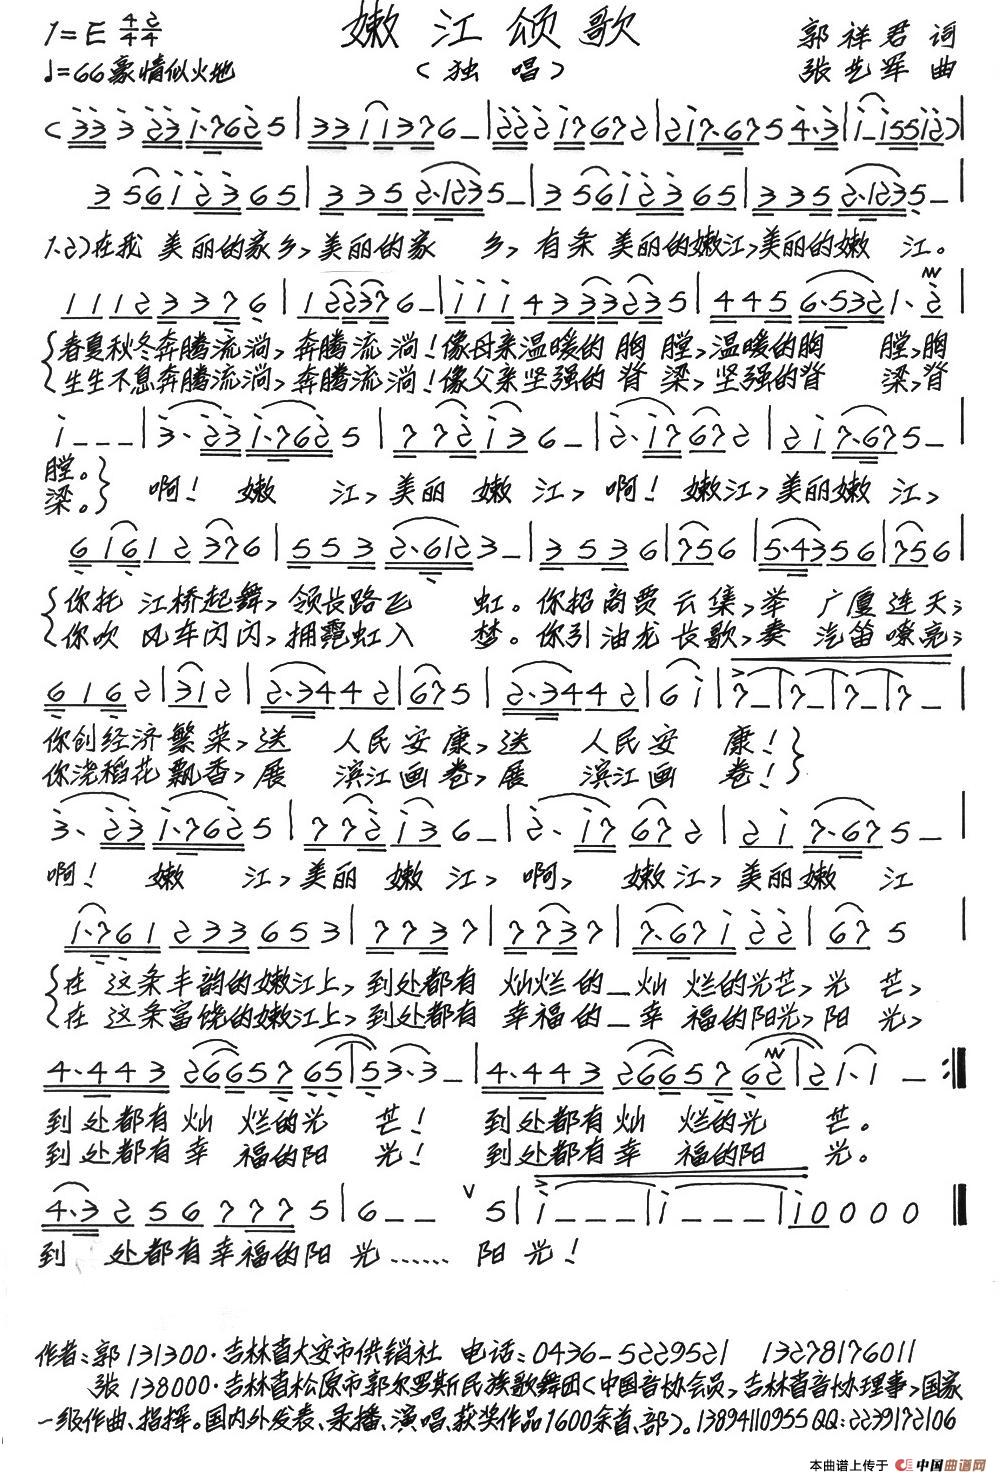 嫩江颂歌
1=E 4/4 2/4
郭祥君 词
♩=66 豪情似火地
（独 唱）
张艺军 曲
1.2)在我 美丽的家乡,美丽的家 乡, 有条 美丽的嫩江,美丽的嫩 江。
春夏秋冬奔腾流淌, 奔腾流淌!像母亲温暖的胸膛,温暖的胸 膛,胸
生生不息奔腾流淌, 奔腾流淌!像父亲坚强的脊梁,坚强的脊 梁,脊
膛。
梁。
啊! 嫩 江,美丽 嫩 江, 啊! 嫩江,美丽嫩 江,
你托 江桥起舞, 领长路飞 虹。你招商贾云集,举 广厦连天;
你吹 风车闪闪,拥霓虹入 梦。你引油龙长歌,奏 汽笛嘹亮;
你创经济繁荣,送 人民安康,送 人民安 康!
你浇稻花飘香,展 滨江画卷,展 滨江画 卷!
啊! 嫩 江,美丽 嫩 江, 啊, 嫩江,美丽嫩 江
在 这条丰韵的嫩江上,到处都有 灿烂的_灿 烂的光芒,光 芒,
在 这条富饶的嫩江上,到处都有 幸福的_幸 福的阳光,阳 光,
到处都有灿 烂的光 芒! 到处都有灿 烂的光 芒。
到处都有幸 福的阳 光! 到处都有幸 福的阳 光。
到 处都有幸福的阳 光…… 阳 光!
作者:郭 131300·吉林省大安市供销社 电话:0436-5229521 13278176011
张 138000·吉林省松原市郭尔罗斯民族歌舞团(中国音协会员,吉林省音协理事,国家
一级作曲、指挥。国内外发表、录播、演唱、获奖作品1600余首、部)。13894110955 QQ:2239172106
本曲谱上传于 中国曲谱网